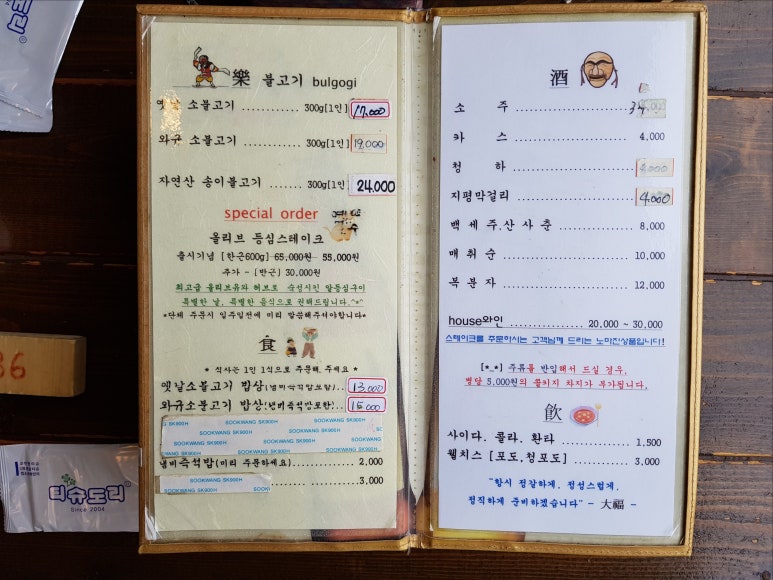 樂 불고기 bulgogi
옛날 소불고기 ............ 300g[1인] 17,000
와규 소불고기 ............ 300g[1인] 19,000
자연산 송이불고기 ........ 300g[1인] 24,000
special order
올리브 등심스테이크
출시기념 [한근600g] 65,000원→ 55,000원
추가 - [반근] 30,000원
최고급 올리브유와 허브로 숙성시킨 알등심구이
특별한 날, 특별한 음식으로 권해드립니다.^*^
*단체 주문시 일주일전에 미리 말씀해주셔야합니다*
食
* 식사는 1인 1식으로 주문해 주세요 *
옛날소불고기 밥상(냄비즉석밥포함).. 13,000
와규소불고기 밥상(냄비즉석밥포함).. 15,000
SOOKWANG SK900H
냄비즉석밥(미리 주문하세요) ........... 2,000
SOOKWANG SK900H
3,000
酒
소 주
카 스 4,000
청 하
지평막걸리 4,000
백 세 주,산 사 춘 8,000
매 취 순 10,000
복 분 자 12,000
house와인 ................ 20,000 ~ 30,000
스테이크를 주문하시는 고객님께 드리는 노마진상품입니다!
[*_*] 주류를 반입해서 드실 경우,
병당 5,000원의 콜키지 차지가 부가됩니다.
飮
사이다. 콜라. 환타 ................ 1,500
웰치스 [포도,청포도] ................ 3,000
"항시 정갈하게, 정성스럽게,
정직하게 준비하겠습니다" - 大福 -
티슈도리
Since 2004
36